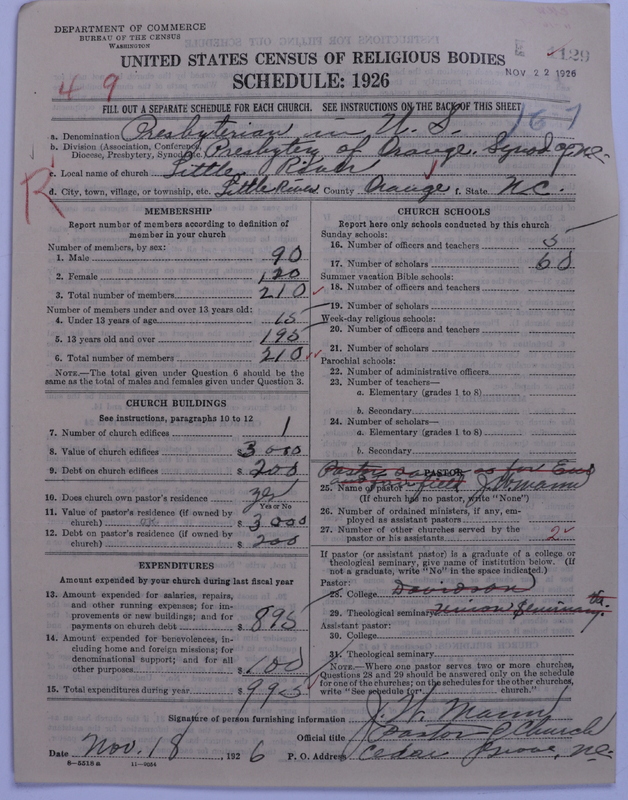 DEPARTMENT OF COMMERCE
BUREAU OF THE CENSUS
WASHINGTON
129
NOV 22 1926
UNITED STATES CENSUS OF RELIGIOUS BODIES
SCHEDULE: 1926
4 9
FILL OUT A SEPARATE SCHEDULE FOR EACH CHURCH. SEE INSTRUCTIONS ON THE BACK OF THIS SHEET
167
a. Denomination Presbyterian in U. S.
b. Division (Association, Conference, Diocese, Presbytery, Synod, etc.) Presbytery of Orange. Synod of N.C.
c. Local name of church Little River
R
d. City, town, village, or township, etc. Little River e. County Orange f. State N.C.
MEMBERSHIP
Report number of members according to definition of
member in your church
Number of members, by sex:
1. Male 90
2. Female 120
3. Total number of members 210
Number of members under and over 13 years old:
4. Under 13 years of age 15
5. 13 years old and over 195
6. Total number of members 210
NOTE.—The total given under Question 6 should be
same as the total of males and females given under Question 3.
CHURCH BUILDINGS
See instructions, paragraphs 10 to 12
7. Number of church edifices 1
8. Value of church edifices $ 3000
9. Debt on church edifices $ 200
10. Does church own pastor's residence yes
Yes or No
11. Value of pastor's residence (if owned by
church) $ 3000
12. Debt on pastor's residence (if owned by
church) $ 200
EXPENDITURES
Amount expended by your church during last fiscal year
13. Amount expended for salaries, repairs,
and other running expenses; for im-
provements or new buildings; and for
payments on church debt $ 895
14. Amount expended for benevolences, in-
cluding home and foreign missions; for
denominational support; and for all
other purposes $ 100
15. Total expenditures during year $ 995
CHURCH SCHOOLS
Report here only schools conducted by this church
Sunday schools:
16. Number of officers and teachers 5
17. Number of scholars 60
Summer vacation Bible schools:
18. Number of officers and teachers
19. Number of scholars
Week-day religious schools:
20. Number of officers and teachers
21. Number of scholars
Parochial schools:
22. Number of administrative officers
23. Number of teachers—
a. Elementary (grades 1 to 8)
b. Secondary
24. Number of scholars—
a. Elementary (grades 1 to 8)
b. Secondary
PASTOR
25. Name of pastor J. W. Mann
(If church has no pastor, write "None")
26. Number of ordained ministers, if any, em-
ployed as assistant pastors
27. Number of other churches served by the
pastor or his assistants 2
If pastor (or assistant pastor) is a graduate of a college, or
theological seminary, give name of institution below. (If
not a graduate, write "No" in the space indicated.)
Pastor:
28. College Davidson
29. Theological seminary Union Seminary
Assistant pastor:
30. College
31. Theological seminary
NOTE.—Where one pastor serves two or more churches,
Questions 28 and 29 should be answered only on the schedule
for one of the churches; on the schedules for the other churches,
write "See schedule for church."
Signature of person furnishing information J. W. Mann
Official title Pastor of Church
Date Nov. 18, 1926 P. O. Address Cedar Grove, N.C.
8—5518 a 11—9054